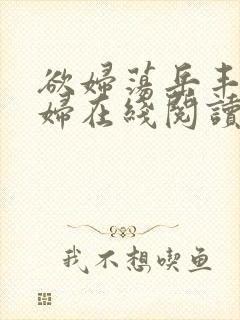 欲婦蕩岳丰
婦在綫閱讀
我不想喫鱼